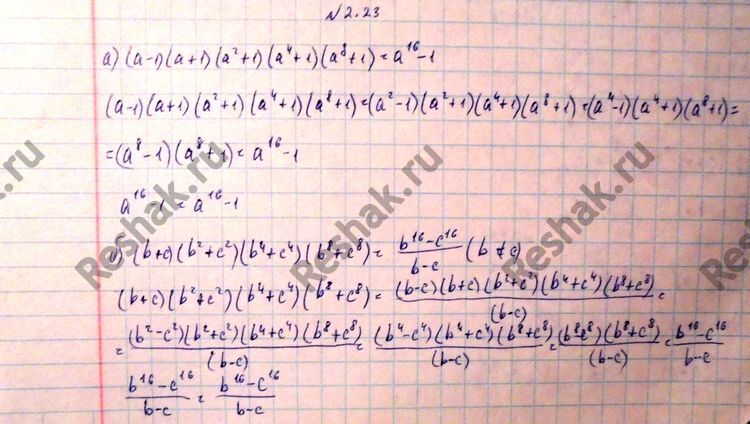 № 2.23
а) (a-1)(a+1)(a²+1)(a⁴+1)(a⁸+1)=a¹⁶-1
(a-1)(a+1)(a²+1)(a⁴+1)(a⁸+1)=(a²-1)(a²+1)(a⁴+1)(a⁸+1)=(a⁴-1)(a⁴+1)(a⁸+1)=
=(a⁸-1)(a⁸+1)=a¹⁶-1
a¹⁶-1=a¹⁶-1
б) (b+c)(b²+c²)(b⁴+c⁴)(b⁸+c⁸)= (b¹⁶-c¹⁶)/(b-c) (b≠c)
(b+c)(b²+c²)(b⁴+c⁴)(b⁸+c⁸)= ((b-c)(b+c)(b²+c²)(b⁴+c⁴)(b⁸+c⁸))/(b-c) =
= ((b²-c²)(b²+c²)(b⁴+c⁴)(b⁸+c⁸))/(b-c) = ((b⁴-c⁴)(b⁴+c⁴)(b⁸+c⁸))/(b-c) = ((b⁸-c⁸)(b⁸+c⁸))/(b-c) = (b¹⁶-c¹⁶)/(b-c)
(b¹⁶-c¹⁶)/(b-c) = (b¹⁶-c¹⁶)/(b-c)
Reshak.ru
Reshak.ru
Reshak.ru
Reshak.ru